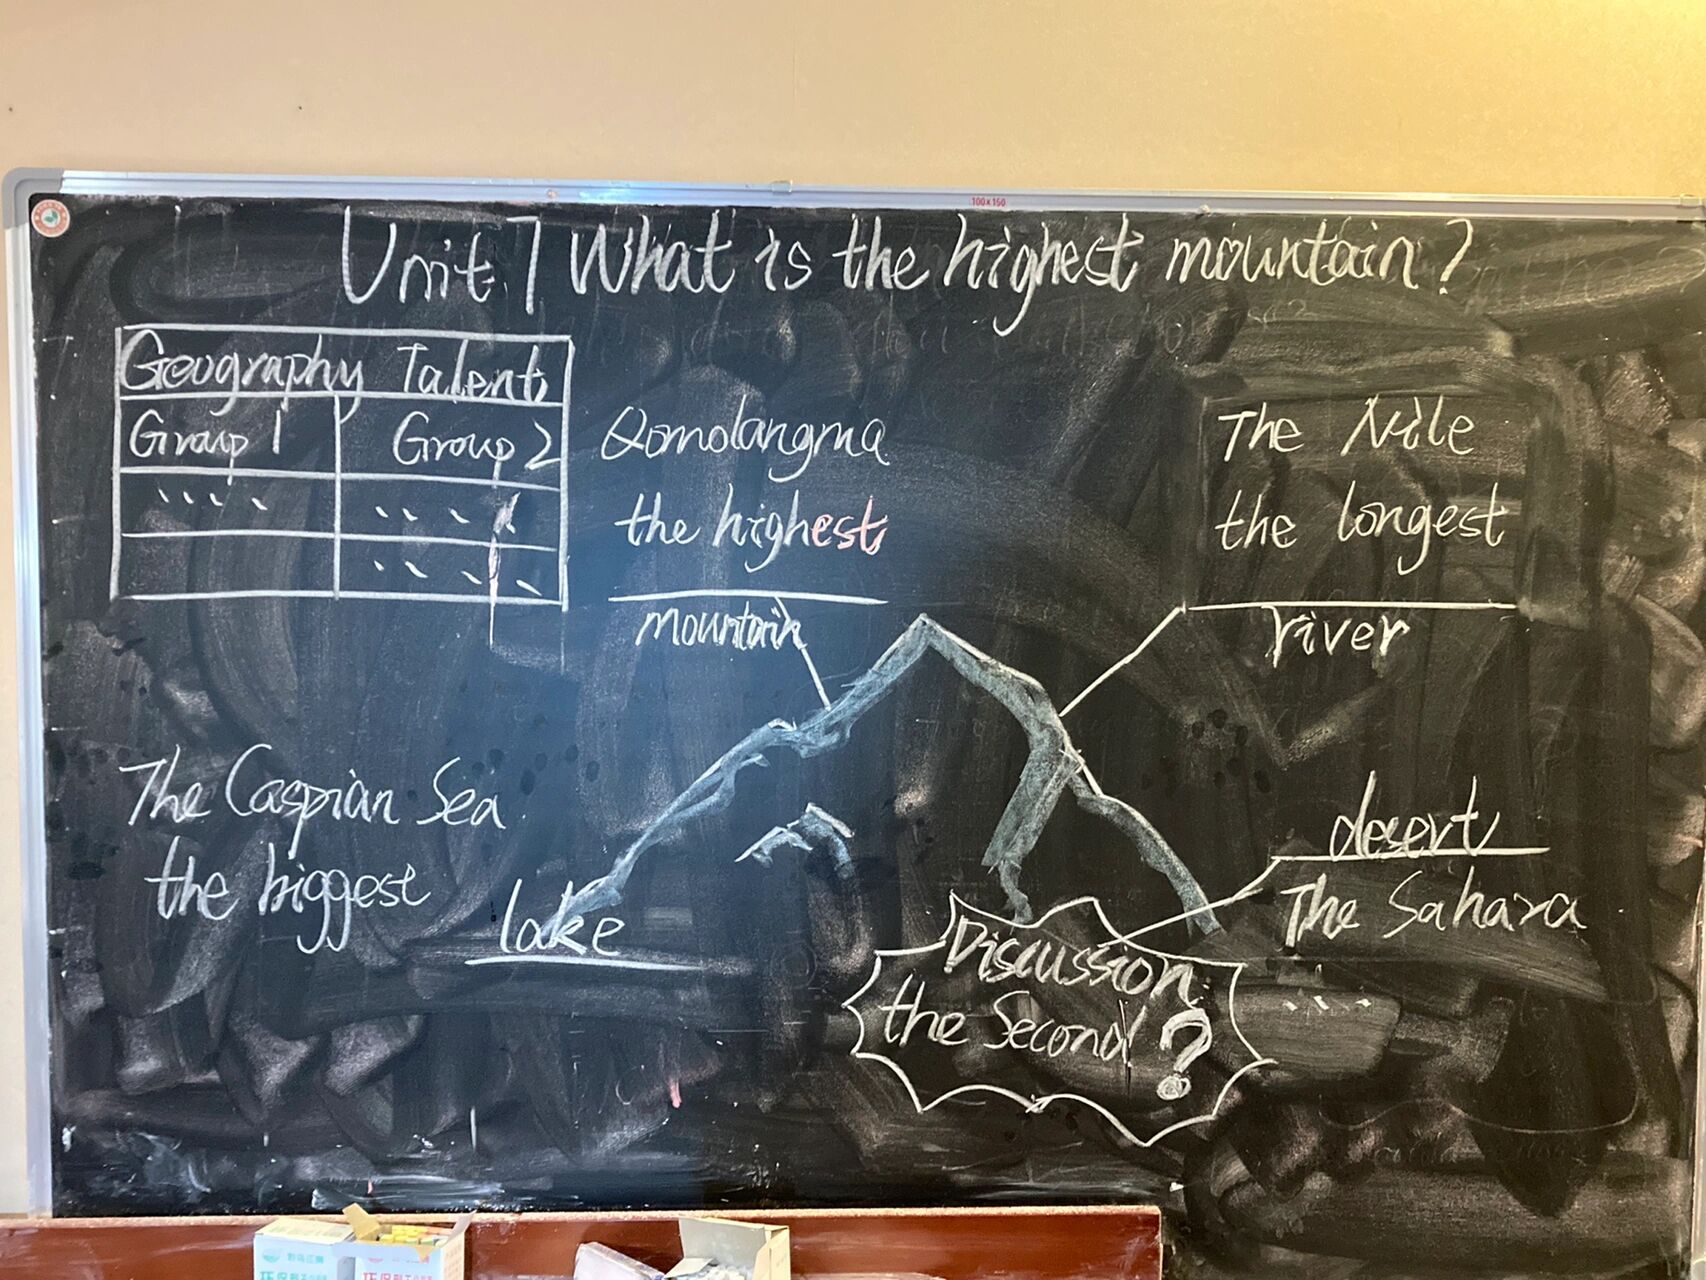 100x150
Unit 7 What is the highest mountain?
Geography Talent
Group 1 Group 2
Qomolangma
the highest
mountain
The Nile
the longest
river
The Caspian Sea
the biggest
lake
desert
The Sahara
Discussion
the Second?